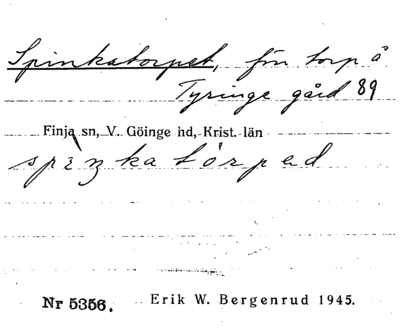 Spinkatorpet, f̈n torp å
Tyringe gård 89
Finja sn, V. Göinge hd, Krist. län
spiŋkatörped
Nr 5356. Erik W. Bergenrud 1945.